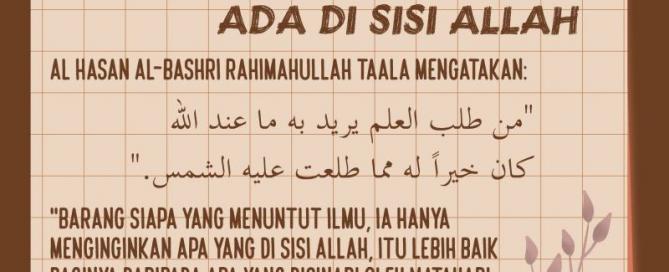 ADA DI SISI ALLAH
AL HASAN AL-BASHRI RAHIMAHULLAH TAALA MENGATAKAN:
"من طلب العلم يريد به ما عند الله
كان خيراً له مما طلعت عليه الشمس."
"BARANG SIAPA YANG MENUNTUT ILMU, IA HANYA
MENGINGINKAN APA YANG DI SISI ALLAH, ITU LEBIH BAIK
BAGINYA DARIPADA APA YANG DISINARI OLEH MATAHARI